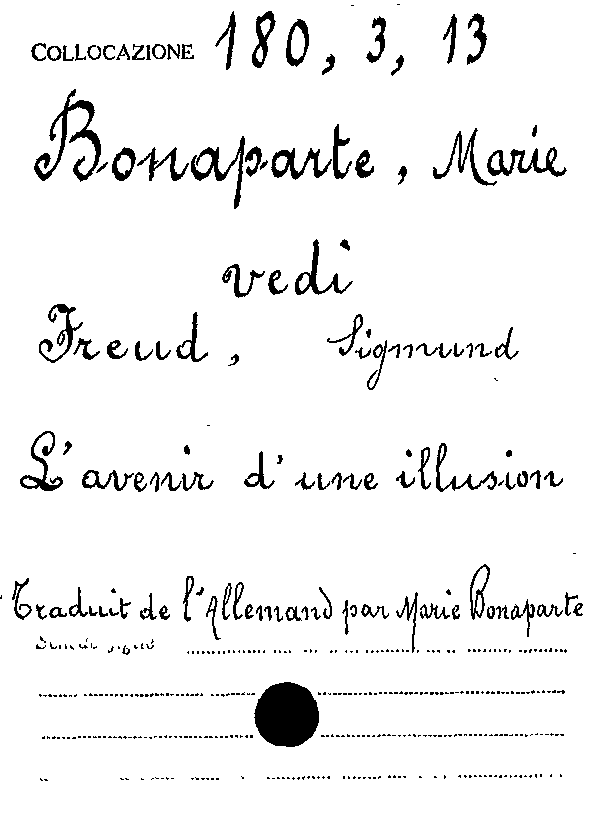 COLLOCAZIONE 180, 3, 13
Bonaparte, Marie
vedi
Freud, Sigmund
L'avenir d'une illusion
Traduit de l'Allemand par Marie Bonaparte